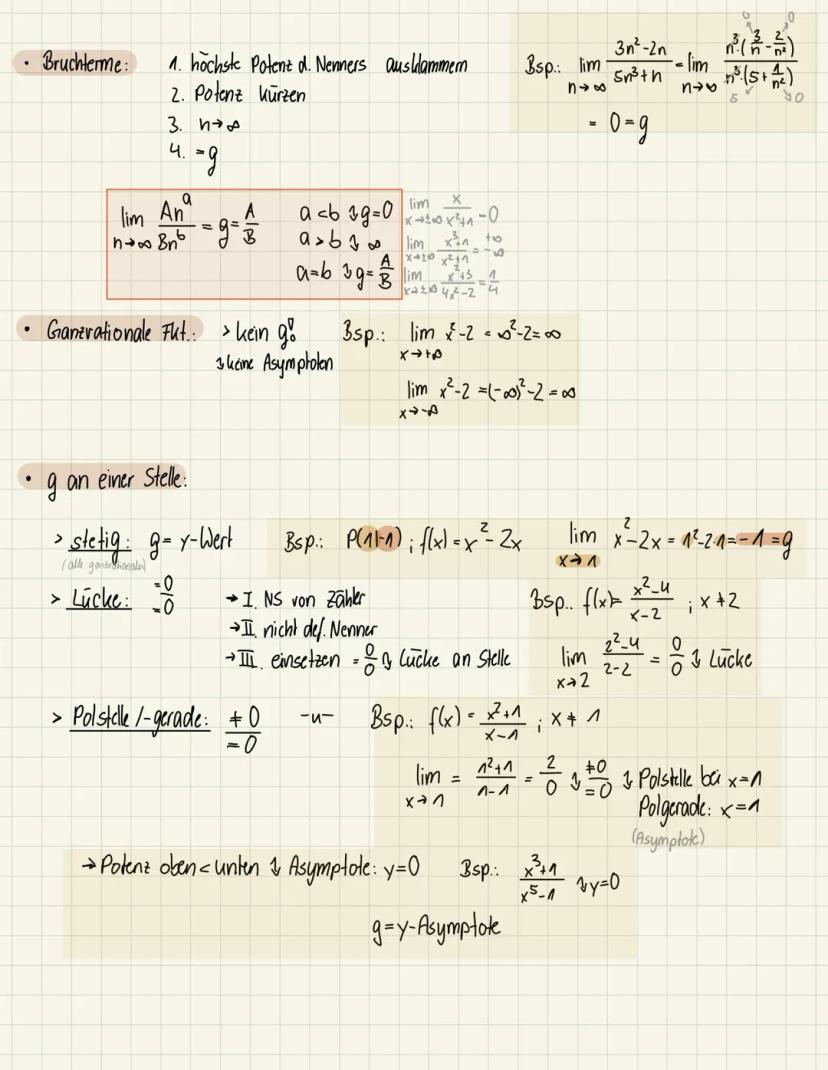 • Bruchterme: 1. höchste Potenz d. Nenners ausklammern
2. Potenz kürzen
3. n→∞
4. =g
Bsp.: lim n→∞ (3n²-2n)/(5n³+n) = lim n→∞ n³·(3/n - 2/n²)/n³·(5+1/n²)
0 0
5 0
= 0=g
lim n→∞ Anᵃ/Bnᵇ = g = A/B
a<b ↯ g=0
a>b ↯ ∞
a=b ↯ g=A/B
lim x→±∞ x/(x²+1) = 0
lim x→±∞ (x³+1)/(x²+1) = +∞ -∞
lim x→±∞ (x²+3)/(4x²-2) = 1/4
• Ganzrationale Fkt.: > kein g!
↯ keine Asymptoten
Bsp.: lim x→+∞ x²-2 = ∞²-2=∞
lim x→-∞ x²-2 =(-∞)²-2=∞
• g an einer Stelle:
> stetig: g= y-Wert Bsp.: P(1|-1) ; f(x)=x²-2x lim x→1 x²-2x = 1²-2·1=-1=g
(alle ganzrationalen)
> Lücke: =0/=0 → I. NS von Zähler
→ II. nicht def. Nenner
→ III. einsetzen = 0/0 ↯ Lücke an Stelle
Bsp.: f(x)= (x²-4)/(x-2) ; x≠2
lim x→2 (2²-4)/(2-2) = 0/0 ↯ Lücke
> Polstelle/-gerade: ≠0/=0 -"- Bsp.: f(x) = (x²+1)/(x-1) ; x≠1
lim x→1 = (1²+1)/(1-1) = 2/0 ↯ ≠0/=0 ↯ Polstelle bei x=1
Polgerade: x=1
(Asymptote)
→ Potenz oben<unten ↯ Asymptote: y=0 Bsp.: (x³+1)/(x⁵-1) ↯ y=0
g=y-Asymptote